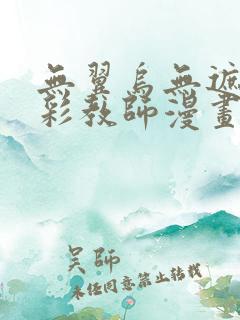 無翼鳥無遮
彩教師漫畫
吴師
未經同意禁止转载